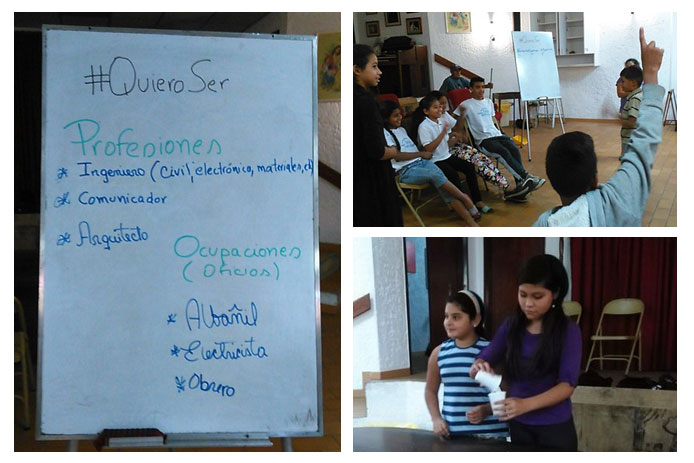 #QuieroSer
Profesiones
* Ingeniero (civil, electrónico, materiales, ct)
* Comunicador
* Arquitecto
Ocupaciones
(Oficios)
* Albañil
* Electricista
* Obrero
#QuieroSer